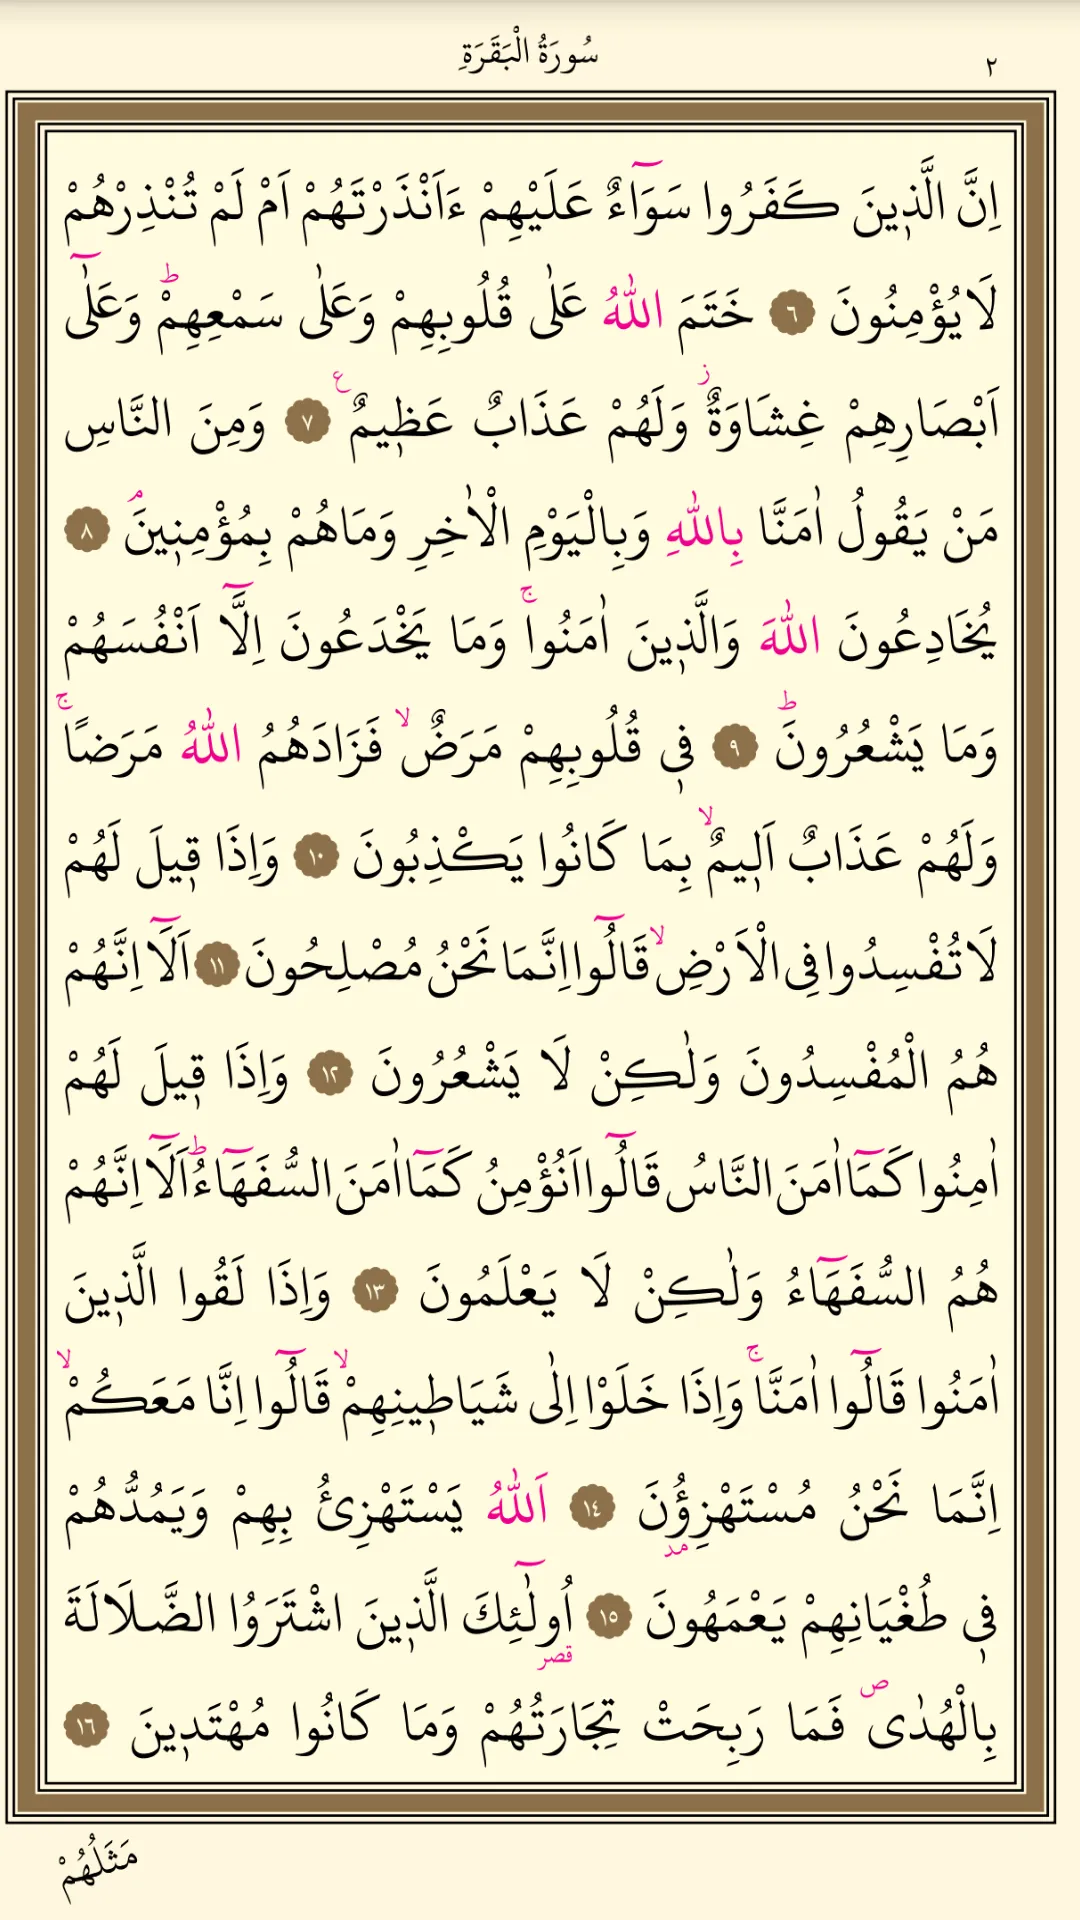 سُورَةُ الْبَقَرَةِ
٢
اِنَّ الَّذ۪ينَ كَفَرُوا سَوَٓاءٌ عَلَيْهِمْ ءَاَنْذَرْتَهُمْ اَمْ لَمْ تُنْذِرْهُمْ
لَا يُؤْمِنُونَ ٦ خَتَمَ اللّٰهُ عَلٰى قُلُوبِهِمْ وَعَلٰى سَمْعِهِمْۜ وَعَلٰٓى
اَبْصَارِهِمْ غِشَاوَةٌۘ وَلَهُمْ عَذَابٌ عَظ۪يمٌ۟ ٧ وَمِنَ النَّاسِ
مَنْ يَقُولُ اٰمَنَّا بِاللّٰهِ وَبِالْيَوْمِ الْاٰخِرِ وَمَاهُمْ بِمُؤْمِن۪ينَۢ ٨
يُخَادِعُونَ اللّٰهَ وَالَّذ۪ينَ اٰمَنُواۚ وَمَا يَخْدَعُونَ اِلَّٓا اَنْفُسَهُمْ
وَمَا يَشْعُرُونَۜ ٩ ف۪ي قُلُوبِهِمْ مَرَضٌۙ فَزَادَهُمُ اللّٰهُ مَرَضًاۚ
وَلَهُمْ عَذَابٌ اَل۪يمٌۙ بِمَا كَانُوا يَكْذِبُونَ ١٠ وَاِذَا ق۪يلَ لَهُمْ
لَا تُفْسِدُوا فِي الْاَرْضِۙ قَالُٓوا اِنَّمَا نَحْنُ مُصْلِحُونَ ١١ اَلَٓا اِنَّهُمْ
هُمُ الْمُفْسِدُونَ وَلٰكِنْ لَا يَشْعُرُونَ ١٢ وَاِذَا ق۪يلَ لَهُمْ
اٰمِنُوا كَمَٓا اٰمَنَ النَّاسُ قَالُٓوا اَنُؤْمِنُ كَمَٓا اٰمَنَ السُّفَهَٓاءُۜ اَلَٓا اِنَّهُمْ
هُمُ السُّفَهَٓاءُ وَلٰكِنْ لَا يَعْلَمُونَ ١٣ وَاِذَا لَقُوا الَّذ۪ينَ
اٰمَنُوا قَالُٓوا اٰمَنَّاۚ وَاِذَا خَلَوْا اِلٰى شَيَاط۪ينِهِمْۙ قَالُٓوا اِنَّا مَعَكُمْۙ
اِنَّمَا نَحْنُ مُسْتَهْزِؤُ۫نَ ١٤ اَللّٰهُ يَسْتَهْزِئُ بِهِمْ وَيَمُدُّهُمْ
مد
ف۪ي طُغْيَانِهِمْ يَعْمَهُونَ ١٥ اُو۬لٰٓئِكَ الَّذ۪ينَ اشْتَرَوُا الضَّلَالَةَ
قصر
بِالْهُدٰىۖ فَمَا رَبِحَتْ تِجَارَتُهُمْ وَمَا كَانُوا مُهْتَد۪ينَ ١٦
مَثَلُهُمْ